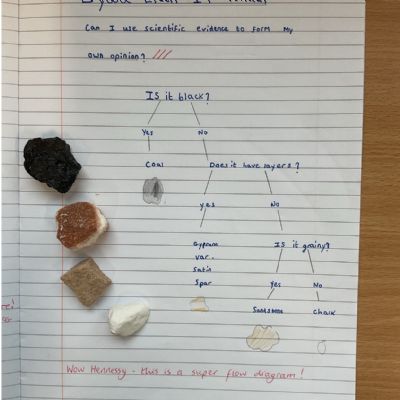 Can I use scientific evidence to form my
own opinion?
Is it black?
Yes No
Coal Does it have layers?
yes No
Gypsum Is it grainy?
var.
Satin Yes No
Spar
Sandstone Chalk
Wow Hennessy - this is a super flow diagram!